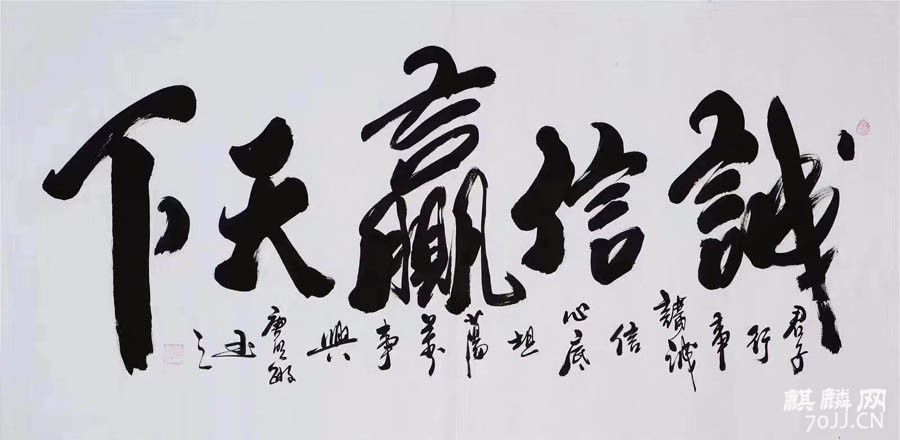 誠信贏天下
君子行事講誠信心底坦蕩萬事興
唐
書之
麒麟网
70JJ.CN